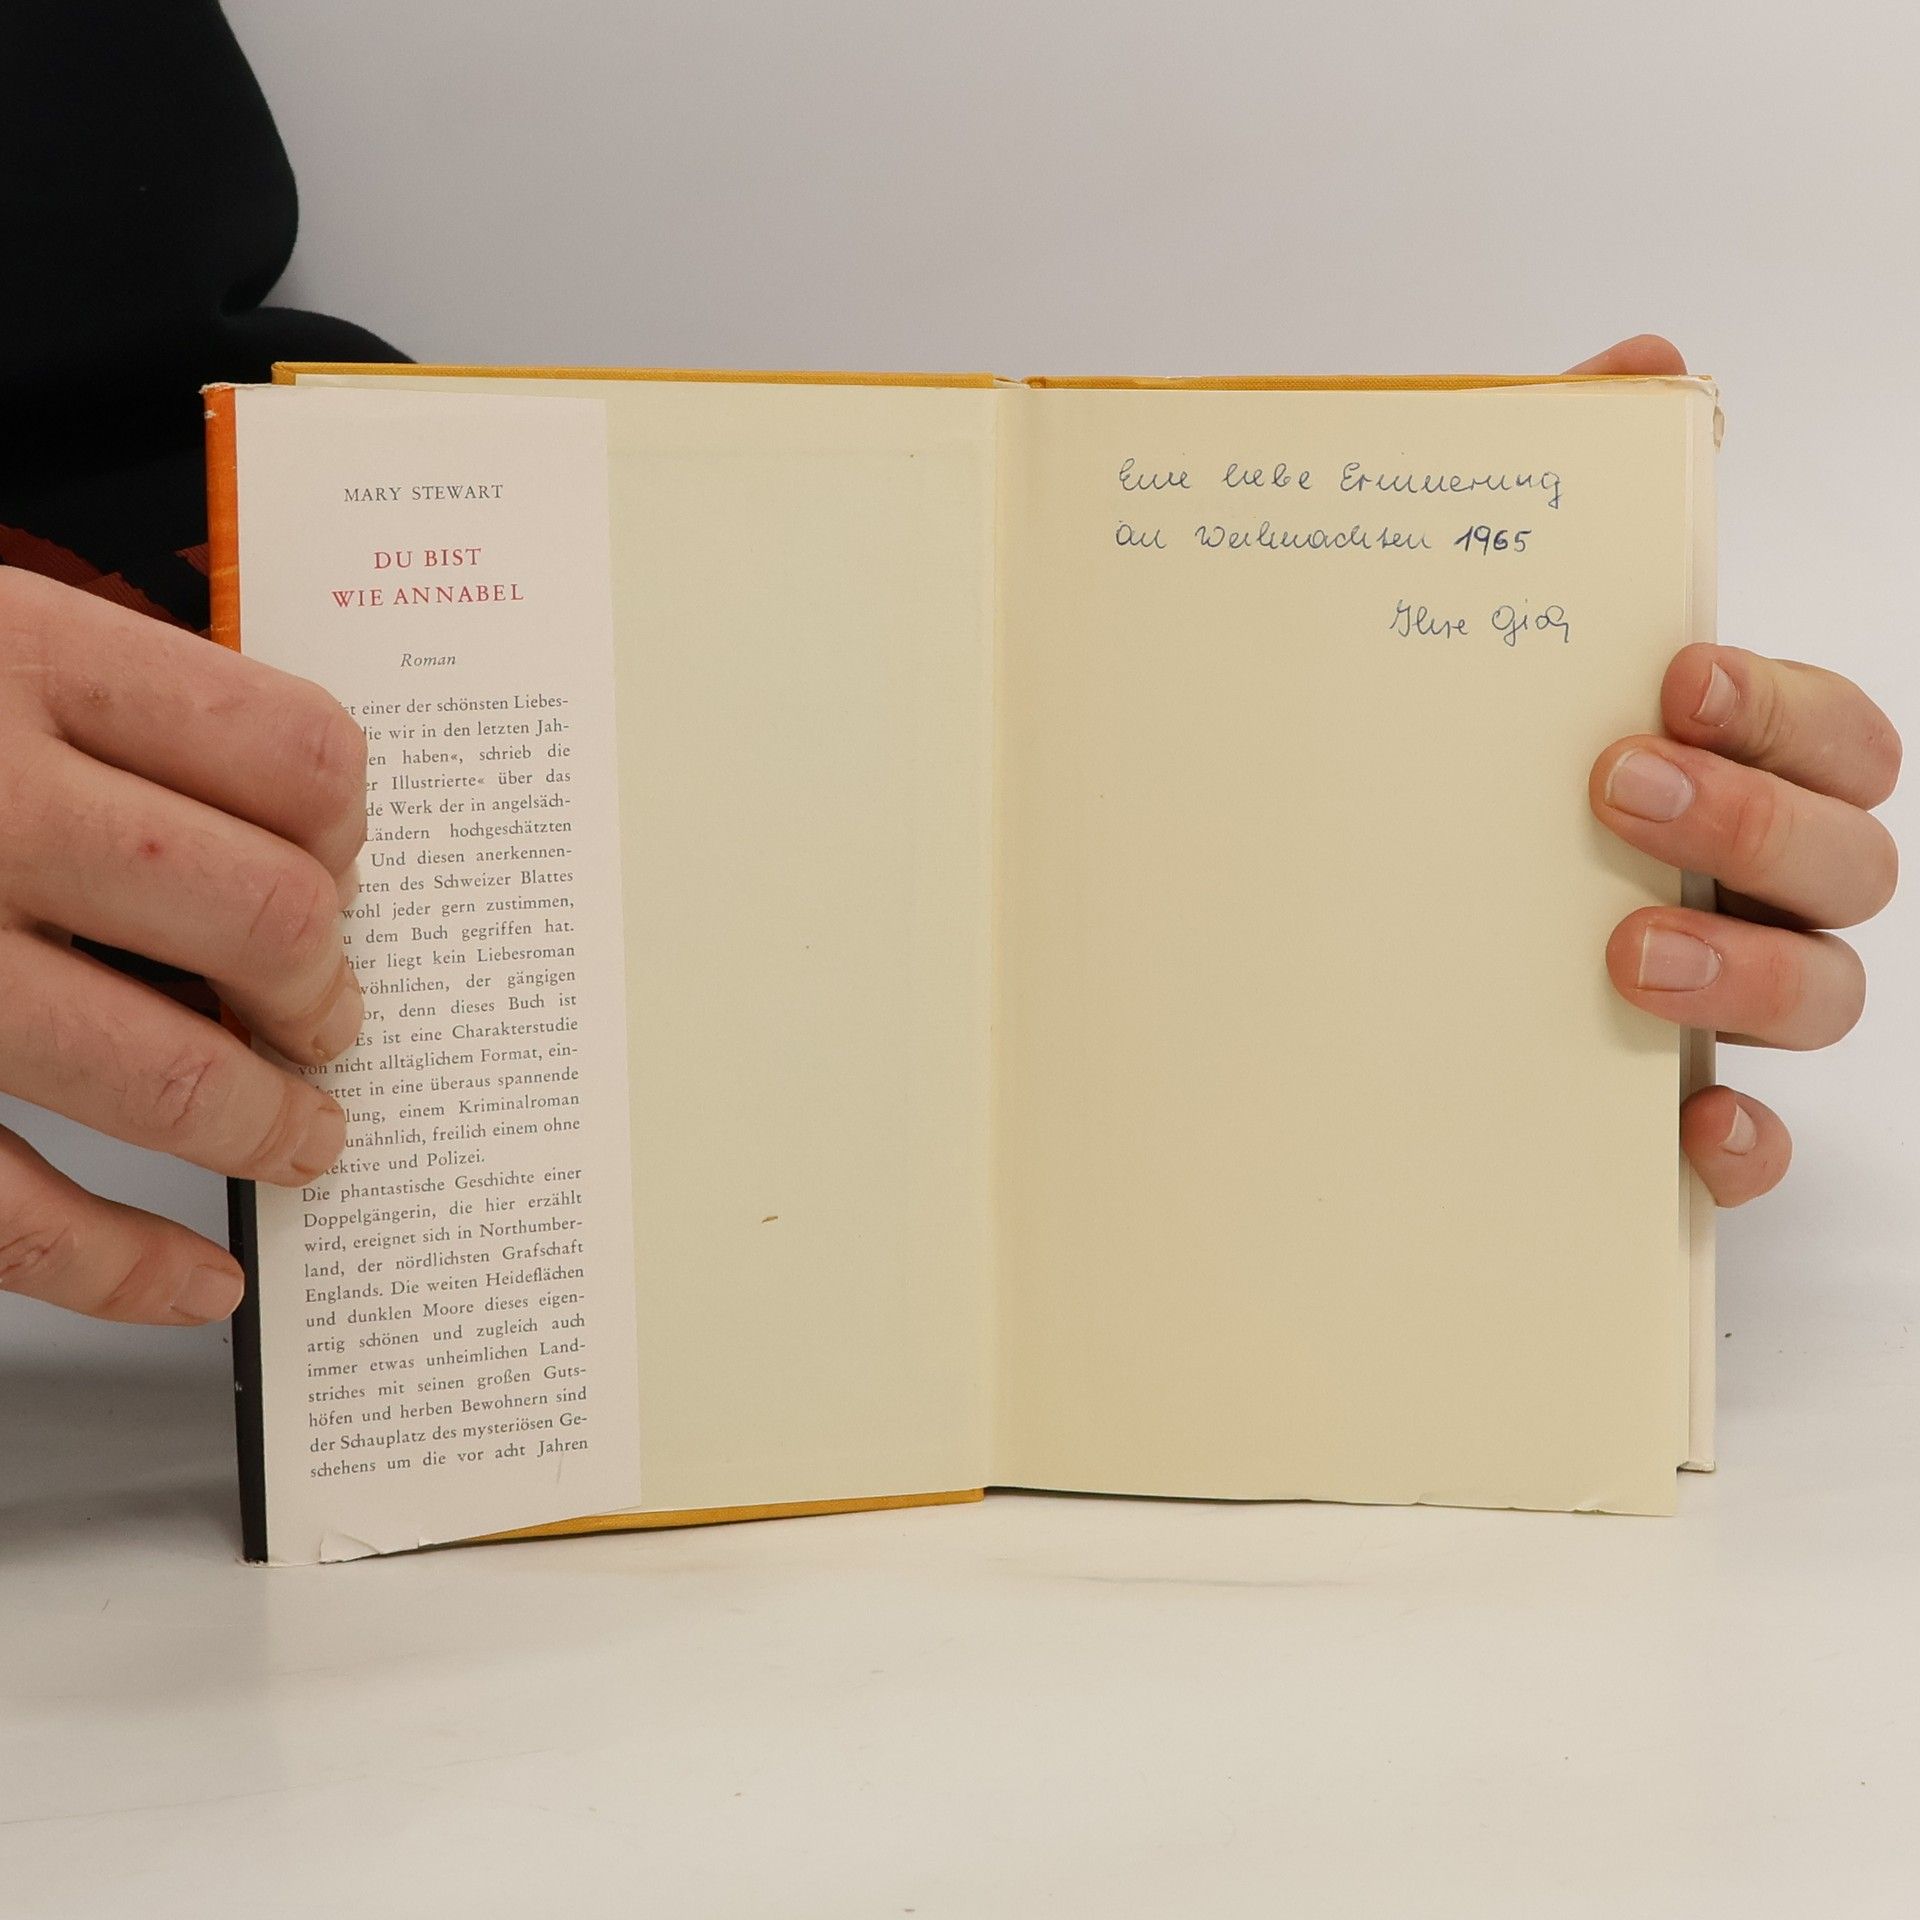 MARY STEWART
DU BIST
WIE ANNABEL
Roman
einer der schönsten Liebes-
wir in den letzten Jah-
haben«, schrieb die
Illustrierte« über das
Werk der in angelsäch-
Ländern hochgeschätzten
Und diesen anerkennen-
des Schweizer Blattes
wohl jeder gern zustimmen,
dem Buch gegriffen hat.
hier liegt kein Liebesroman
der gängigen
denn dieses Buch ist
Es ist eine Charakterstudie
von nicht alltäglichem Format, ein-
in eine überaus spannende
einem Kriminalroman
unähnlich, freilich einem ohne
und Polizei.
Die phantastische Geschichte einer
Doppelgängerin, die hier erzählt
wird, ereignet sich in Northumber-
land, der nördlichsten Grafschaft
Englands. Die weiten Heideflächen
und dunklen Moore dieses eigen-
artig schönen und zugleich auch
immer etwas unheimlichen Land-
striches mit seinen großen Guts-
höfen und herben Bewohnern sind
der Schauplatz des mysteriösen Ge-
schehens um die vor acht Jahren
Eine liebe Erinnerung
an Weihnachten 1965
Ihre